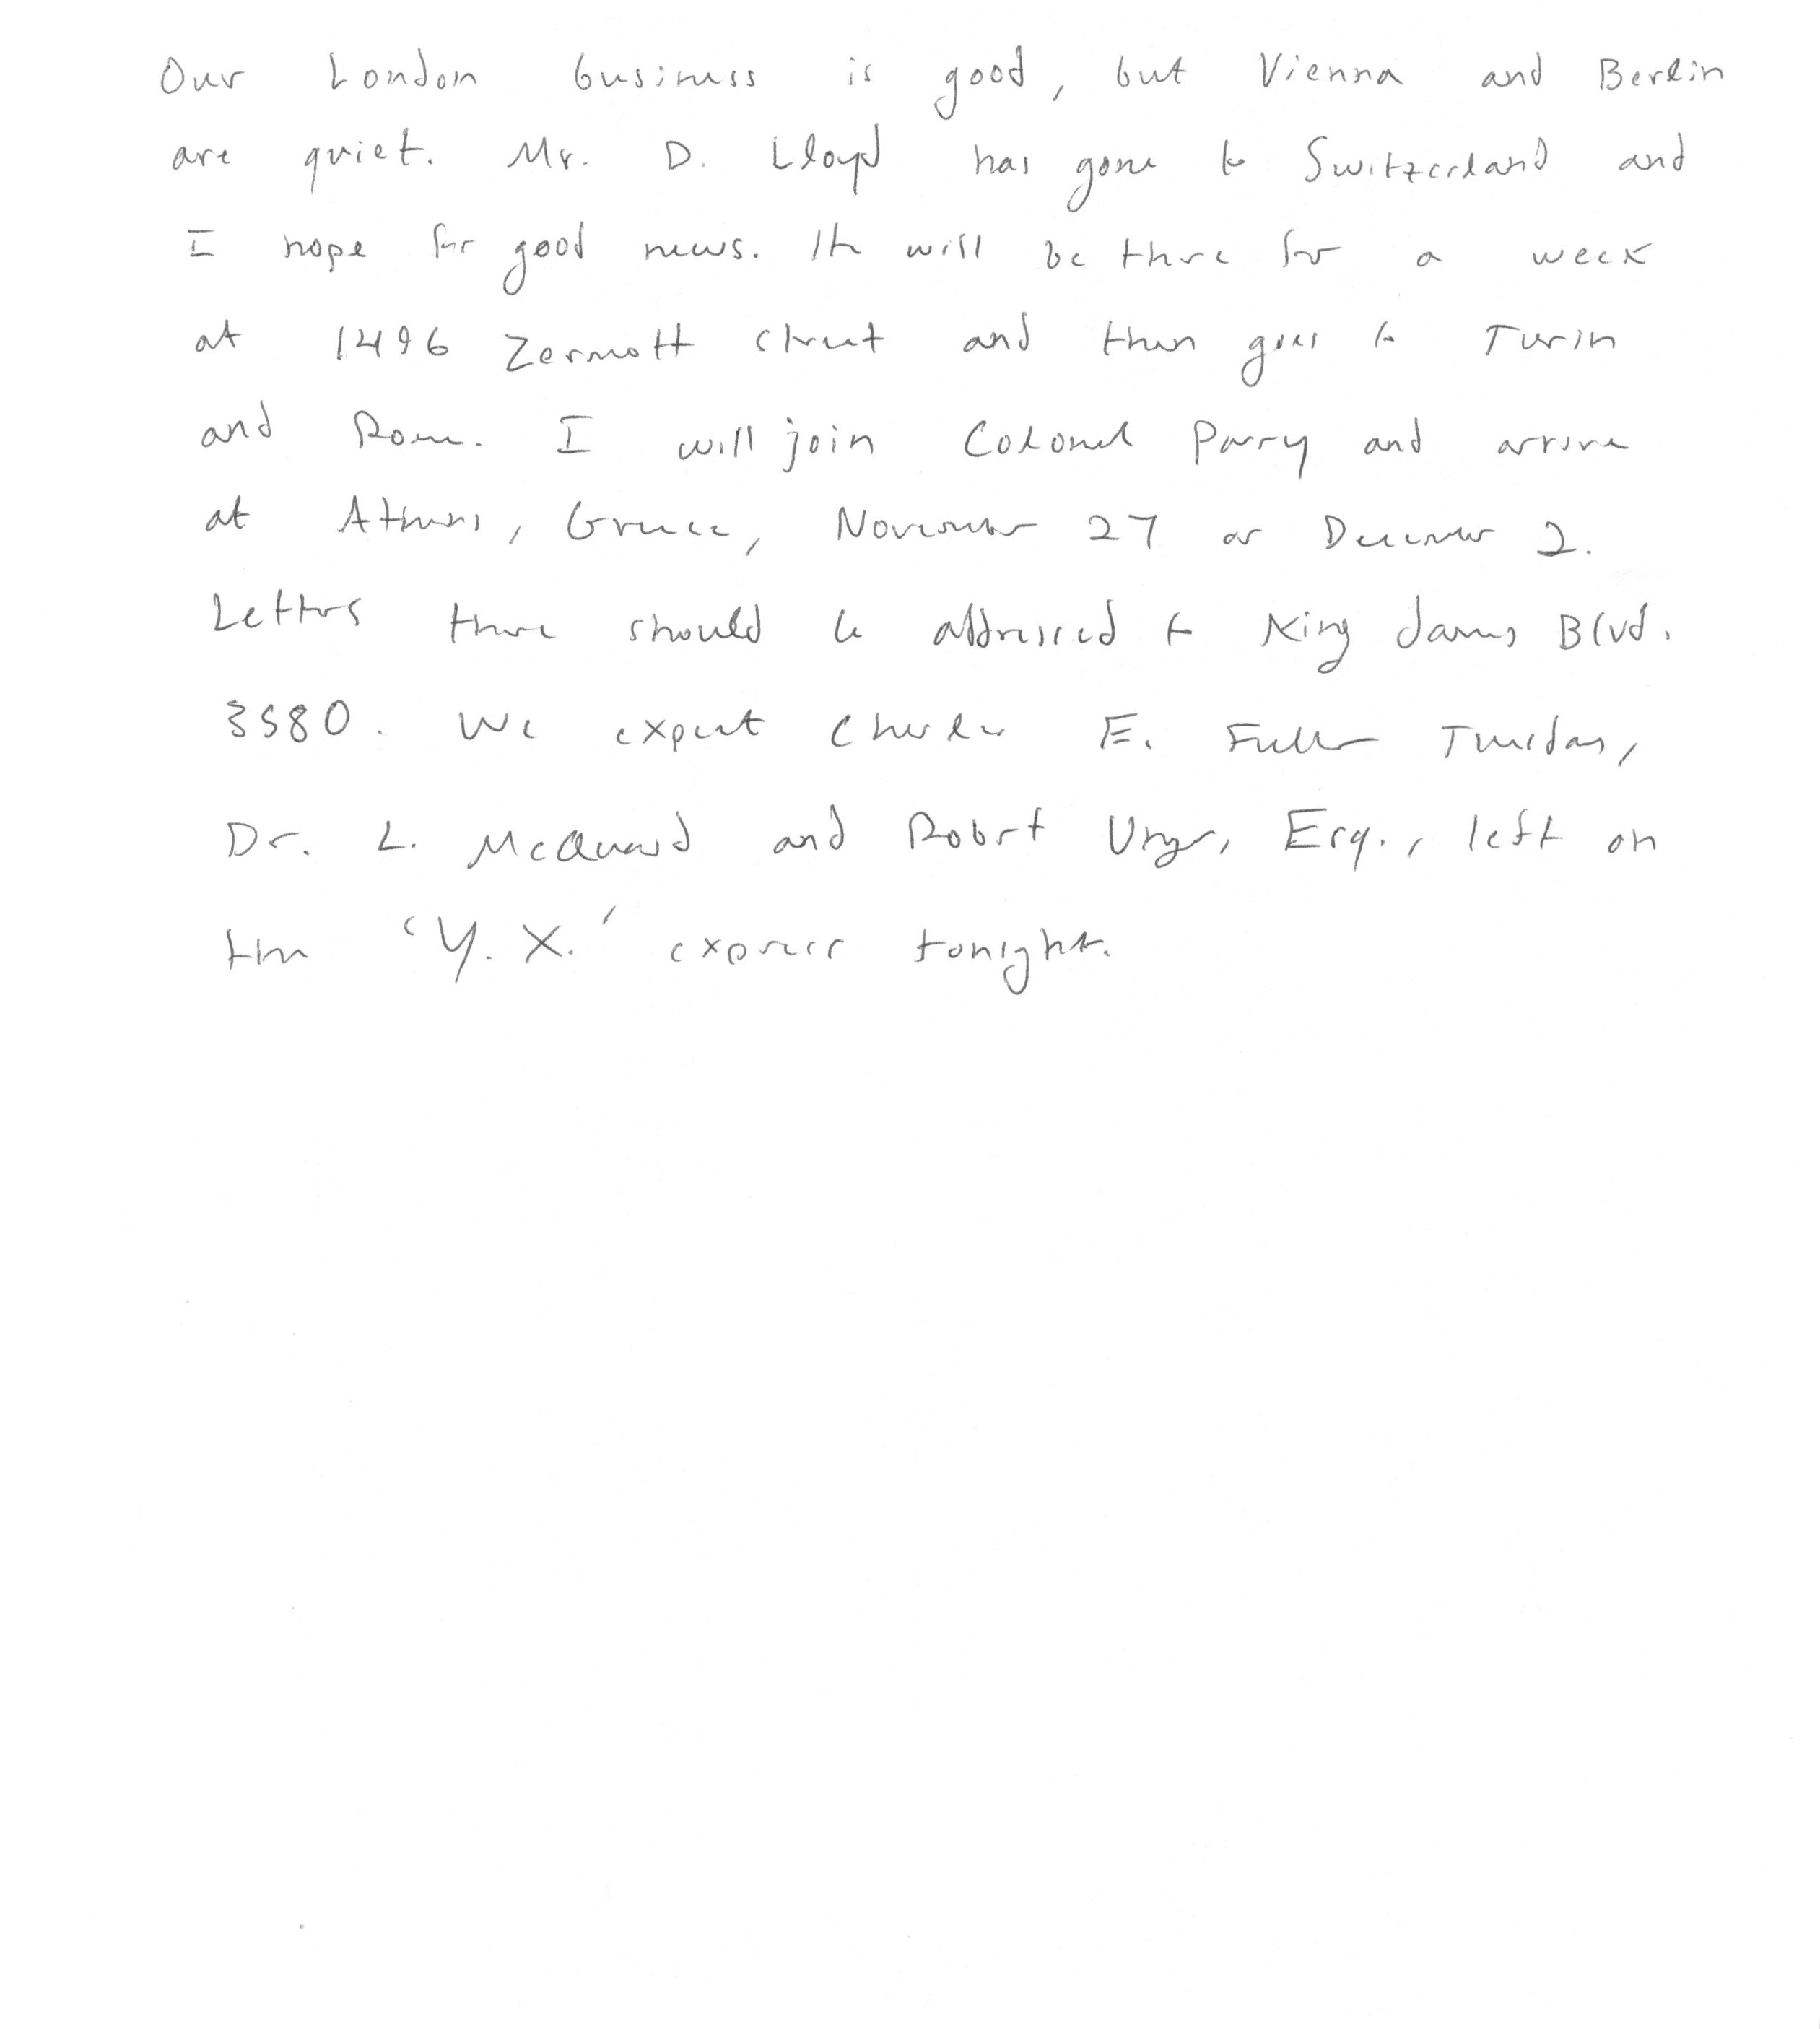 Our London business is good, but Vienna and Berlin
are quiet. Mr. D. Lloyd has gone to Switzerland and
I hope for good news. He will be there for a week
at 1496 Zermott street and then goes to Turin
and Rome. I will join Colonel Parry and arrive
at Athens, Greece, November 27 or December 2.
Letters there should be addressed to King James Blvd.
3580. We expect Charles E. Fuller Tuesday,
Dr. L. McQuaid and Robert Unger, Esq., left on
the 'Y. X.' express tonight.